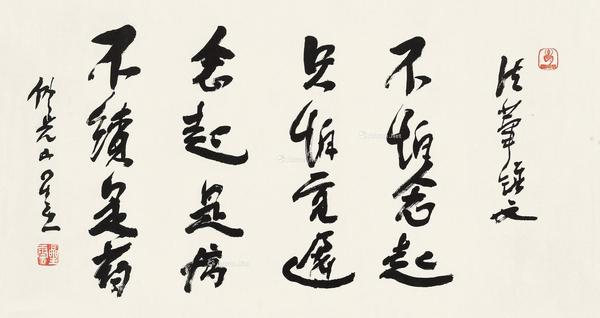 法華經文
不怕念起
只怕覺遲
念起是病
不續是药
佛光山星雲
星雲